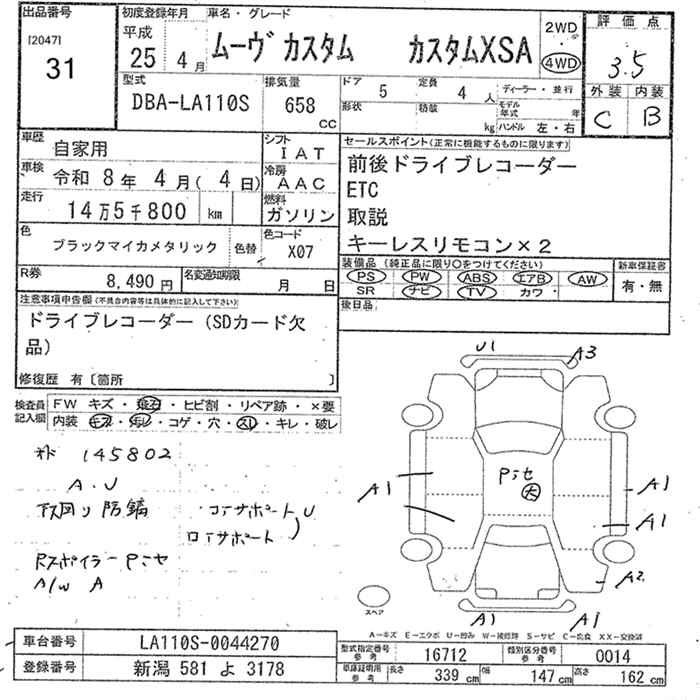 出品番号
[2047]
31
初度登録年月
平成
25 4月
車名・グレード
ムーヴカスタム カスタムXSA
2WD
・
4WD
評価点
3.5
外装 内装
C B
型式
DBA-LA110S
排気量
658
cc
ドア
5
定員
4人
形状
積載
kg
ディーラー・並行
モデル年式 年
ハンドル 左・右
車歴
自家用
車検
令和 8年 4月( 4日)
走行
14万5千800 km
シフト
IAT
冷房
AAC
燃料
ガソリン
色
ブラックマイカメタリック
色替
色コード
X07
R券
8,490円
名変通知期限
月 日
セールスポイント(正常に機能するものに限ります)
前後ドライブレコーダー
ETC
取説
キーレスリモコン×2
装備品(純正品に限り○をつけてください)
PS PW ABS エアB AW
SR ナビ TV カワ・
新車保証書
有・無
後日品
注意事項申告欄(不具合内容等は具体的に記入して下さい)
ドライブレコーダー(SDカード欠
品)
修復歴 有〔箇所 〕
検査員
記入欄
FW キズ・飛石・ヒビ割・リペア跡・×要
内装
キズ・汚レ・コゲ・穴・スレ・キレ・破レ
145802
A.U
下回り防錆
コーナーサポートU
コーナーサポート
Rスポイラー Pニセ
A/W A
U1
A3
Pニセ
大
A1
A1
A1
A2
A1
A1
スペア
A―キズ E―エクボ U―凹み W―補修跡 S―サビ C―腐食 XX―交換済
車台番号
LA110S-0044270
登録番号
新潟 581 よ 3178
型式指定番号
参考
16712
類別区分番号
参考
0014
車庫証明用
参考
長さ
339 cm
幅
147 cm
高さ
162 cm